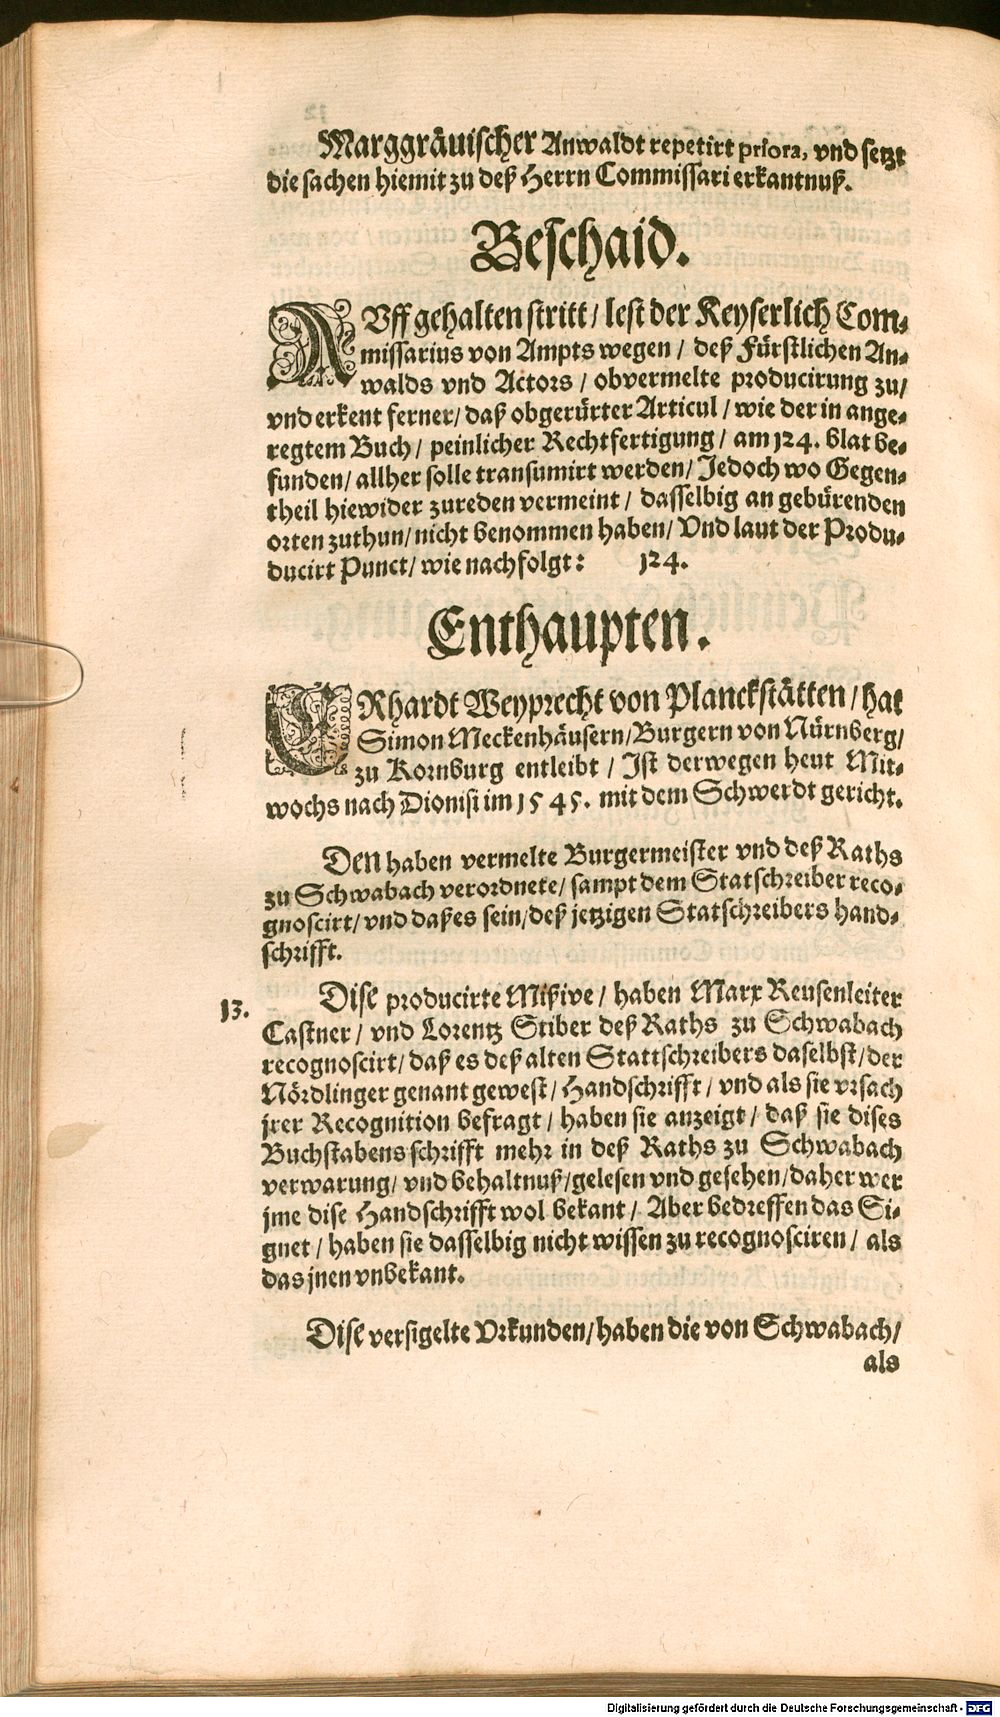 Marggräuischer Anwaldt repetirt priora, vnd setzt
die sachen hiemit zu deß Herrn Commissari erkantnuß.
Beschaid.
AVff gehalten stritt / lest der Keyserlich Com-
missarius von Ampts wegen / deß Fürstlichen An-
walds vnd Actors / obvermelte producirung zu /
vnd erkent ferner / daß obgerürter Articul / wie der in ange-
regtem Buch / peinlicher Rechtfertigung / am 124. blat be-
funden / allher solle transumirt werden / Jedoch wo Gegen-
theil hiewider zureden vermeint / dasselbig an gebürenden
orten zuthun / nicht benommen haben / Vnd laut der Produ-
ducirt Punct / wie nachfolgt: 124.
Enthaupten.
ERhardt Weyprecht von Planckstätten / hat
Simon Meckenhäusern / Burgern von Nürnberg /
zu Kornburg entleibt / Ist derwegen heut Mit-
wochs nach Dionisi im 1545. mit dem Schwerdt gericht.
Den haben vermelte Burgermeister vnd deß Raths
zu Schwabach verordnete / sampt dem Statschreiber reco-
gnoscirt / vnd daß es sein / deß jetzigen Statschreibers hand-
schrifft.
13. Dise producirte Mißive / haben Marx Reusenleiter
Castner / vnd Lorentz Stiber deß Raths zu Schwabach
recognoscirt / daß es deß alten Stattschreibers daselbst / der
Nördlinger genant gewest / Handschrifft / vnd als sie vrsach
jrer Recognition befragt / haben sie anzeigt / daß sie dises
Buchstabens schrifft mehr in deß Raths zu Schwabach
verwarung / vnd behaltnuß / gelesen vnd gesehen / daher wer
jme dise Handschrifft wol bekant / Aber bedreffen das Si-
gnet / haben sie dasselbig nicht wissen zu recognosciren / als
das jnen vnbekant.
Dise versigelte Vrkunden / haben die von Schwabach /
als
Digitalisierung gefördert durch die Deutsche Forschungsgemeinschaft - DFG